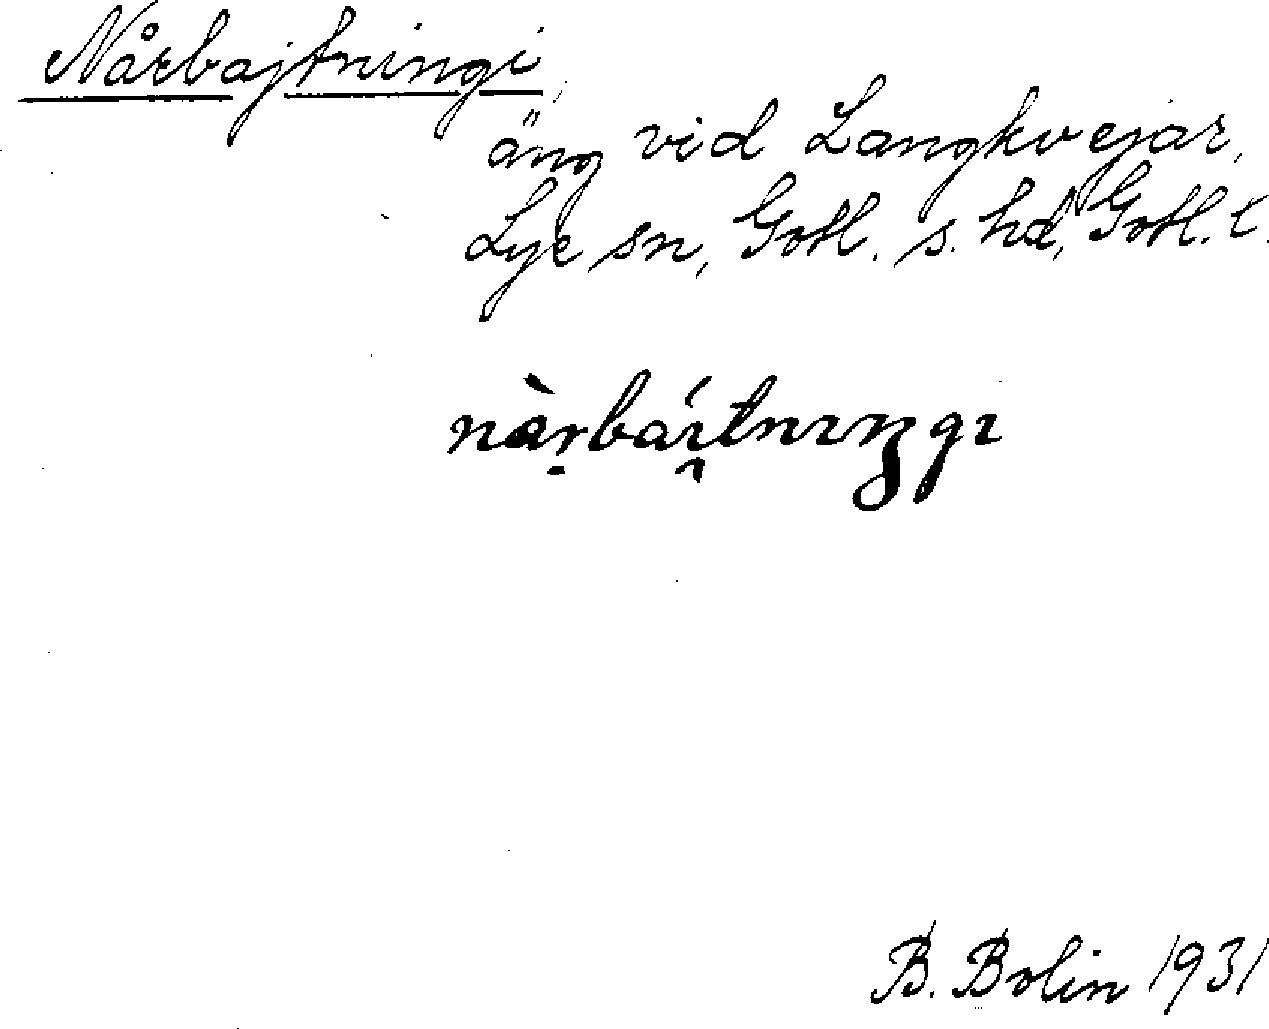 Nårbajtningi,
äng vid Langkvejar,
Lye sn, Gotl. s. hd, Gotl. l.
nàrbáı̯tnıŋgı
B. Bolin 1931